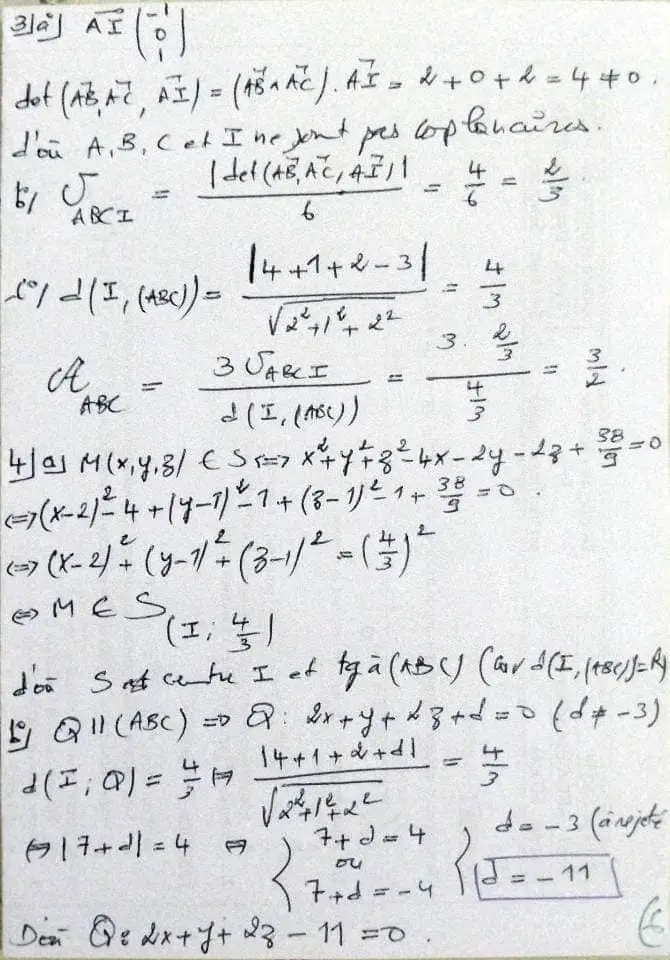 3/a) AI⃗ (-1 0 1)
det(AB⃗, AC⃗, AI⃗) = (AB⃗ ∧ AC⃗). AI⃗ = 2 + 0 + 2 = 4 ≠ 0.
d'où A, B, C et I ne sont pas coplanaires.
b/ V_ABCI = |det(AB⃗, AC⃗, AI⃗)| / 6 = 4/6 = 2/3
c°/ d(I, (ABC)) = |4+1+2-3| / √(2²+1²+2²) = 4/3
A_ABC = 3 V_ABCI / d(I, (ABC)) = (3. 2/3) / (4/3) = 3/2.
4/a) M(x,y,z) ∈ S ⟺ x²+y²+z²-4x-2y-2z+38/9=0
⟺(x-2)²-4+(y-1)²-1+(z-1)²-1+38/9=0.
⟺ (x-2)²+(y-1)²+(z-1)² = (4/3)²
⟺ M ∈ S(I; 4/3)
d'où S est centre I et tg à (ABC) (car d(I,(ABC))=R)
b/ Q // (ABC) ⟹ Q: 2x+y+2z+d=0 (d≠-3)
d(I; Q) = 4/3 ⟺ |4+1+2+d| / √(2²+1²+2²) = 4/3
⟺ |7+d| = 4 ⟺ { 7+d = 4 ou 7+d = -4 { d = -3 (à rejeté d = -11
D'où Q: 2x+y+2z-11=0.